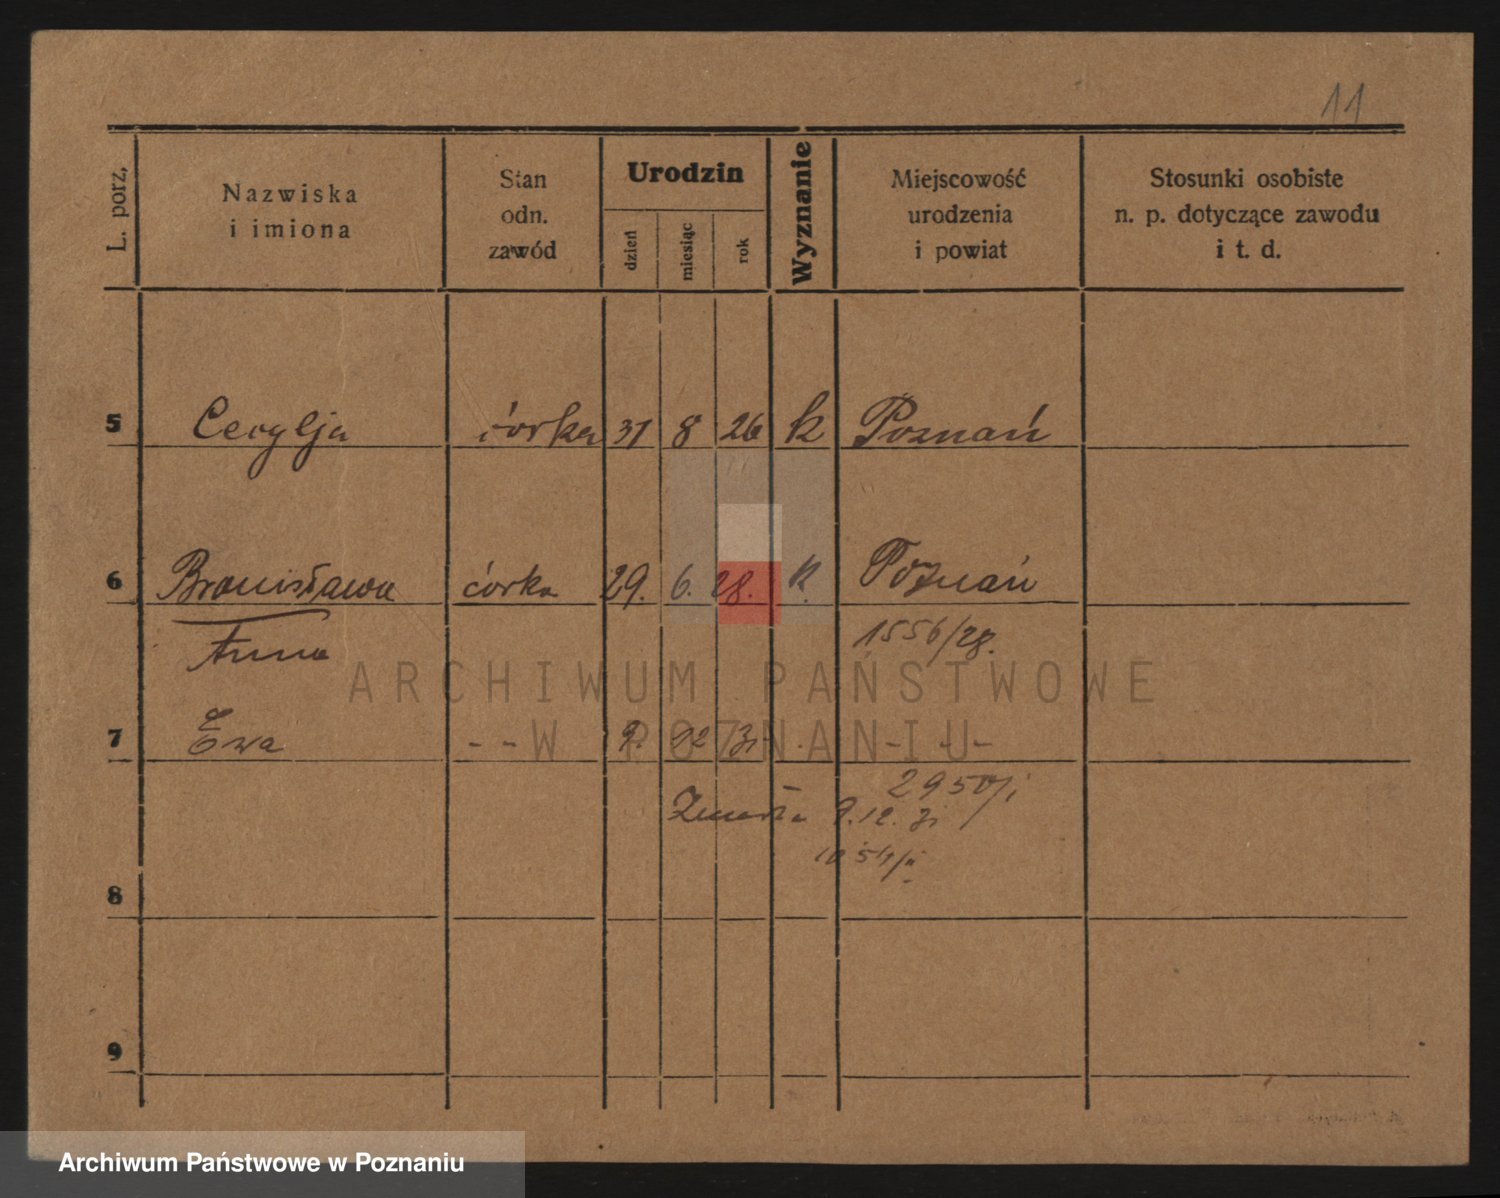 11
L. porz.
Nazwiska
i imiona
Stan
odn.
zawód
Urodzin
dzień
miesiąc
rok
Wyznanie
Miejscowość
urodzenia
i powiat
Stosunki osobiste
n. p. dotyczące zawodu
i t. d.
5 Cecylja córka 31 8 26 k Poznań
6 Bronisława córka 29. 6. 28. k. Poznań
Anna 1556/28.
7 Ewa - - 9. 12 31 - - -
Zmarła 9.12. 31
8
9
ARCHIWUM PAŃSTWOWE
W POZNANIU
Archiwum Państwowe w Poznaniu